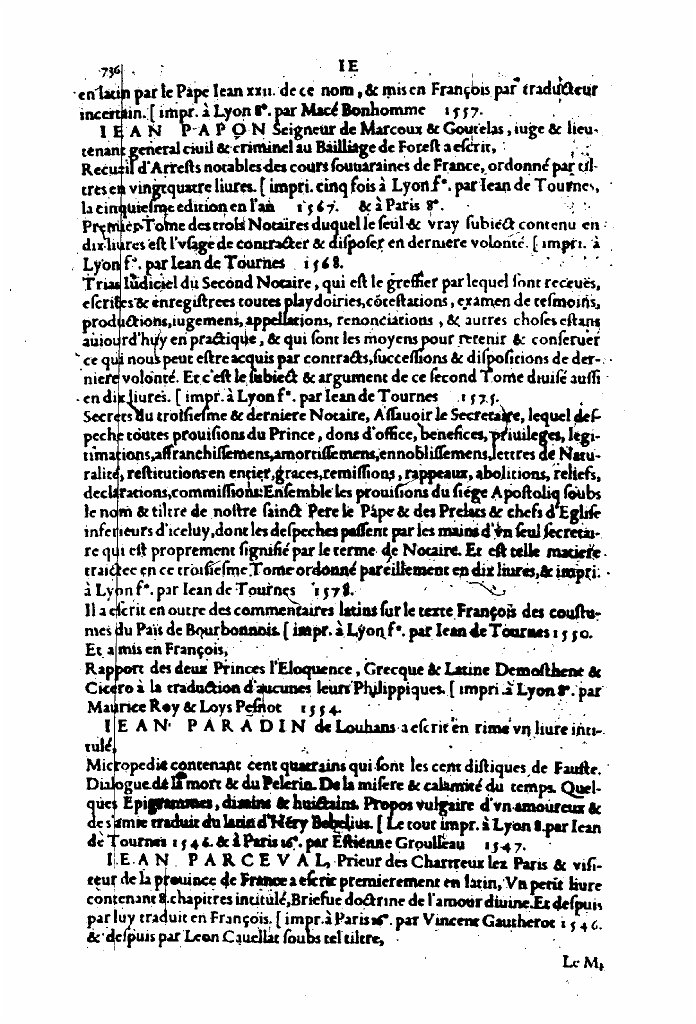 736
IE
en latin par le Pape Iean xxii. de ce nom, & mis en François par traducteur
incertain. [ impr. à Lyon 8°. par Macé Bonhomme 1557.
IEAN PAPON Seigneur de Marcoux & Goutelas, iuge & lieu-
tenant general ciuil & criminel au Bailliage de Forest a escrit,
Recueil d'Arrests notables des cours souuaraines de France, ordonné par til-
tres en vingtquatre liures. [ impri. cinq fois à Lyon f°. par Iean de Tournes,
la cinquiesme edition en l'an 1567. & à Paris 8°.
Premier Tome des trois Notaires duquel le seul & vray subiect contenu en
dix liures est l'vsage de contracter & disposer en derniere volonté. [ impri. à
Lyon f°. par Iean de Tournes 1568.
Trias Iudiciel du Second Notaire, qui est le greffier par lequel sont receuës,
escrites & enregistrees toutes playdoiries, cõtestations, examen de tesmoins,
productions, iugemens, appellations, renonciations, & autres choses estans
auiourd'huy en practique, & qui sont les moyens pour retenir & conseruer
ce qui nous peut estre acquis par contracts, successions & dispositions de der-
niere volonté. Et c'est le subiect & argument de ce second Tome diuisé aussi
en dix liures. [ impr. à Lyon f°. par Iean de Tournes 1575.
Secrets du troisiesme & derniere Notaire, Assauoir le Secretaire, lequel des-
peche toutes prouisions du Prince, dons d'office, benefices, priuileges, legi-
timations, affranchissemens, amortissemens, ennoblissemens, lettres de Natu-
ralité, restitutions en entier, graces, remissions, rappeaux, abolitions, reliefs,
declarations, commissions: Ensemble les prouisions du siége Apostoliq soubs
le nom & tiltre de nostre sainct Pere le Pape & des Prelats & chefs d'Eglise
inferieurs d'iceluy, dont les despeches passent par les mains d'vn seul secretai-
re qui est proprement signifié par le terme de Notaire. Et est telle matiere
traictee en ce troisiesme Tome ordonné pareillement en dix liures, & impri.
à Lyon f°. par Iean de Tournes 1578.
Il a escrit en outre des commentaires latins sur le texte François des coustu-
mes du Païs de Bourbonnois. [ impr. à Lyon f°. par Iean de Tournes 1550.
Et a mis en François,
Rapport des deux Princes l'Eloquence, Grecque & Latine Demosthene &
Cicero à la traduction d'aucunes leurs Philippiques. [ impri. à Lyon 8°. par
Maurice Roy & Loys Pesnot 1554.
IEAN PARADIN de Louhans a escrit en rime vn liure inti-
tulé,
Micropedie contenant cent quatrains qui sont les cent distiques de Fauste.
Dialogue de la mort & du Pelerin. De la misere & calamité du temps. Quel-
ques Epigrammes, dizains & huictains. Propos vulgaire d'vn amoureux &
de s'amie traduit du latin d'Héry Bebelius. [ Le tout impr. à Lyon 8. par Iean
de Tournes 1546. & à Paris 16°. par Estienne Groulleau 1547.
IEAN PARCEVAL, Prieur des Chartreux lez Paris & visi-
teur de la prouince de France a escrit premierement en latin, Vn petit liure
contenant 8. chapitres intitulé, Briefue doctrine de l'amour diuine. Et despuis
par luy traduit en François. [ impr. à Paris 16°. par Vincent Gautherot 1546.
& despuis par Leon Cauellat soubs tel tiltre,
Le M,